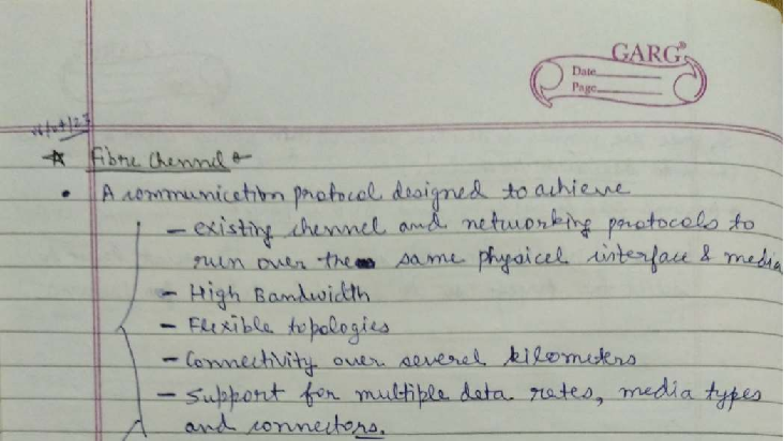 GARG
Date
Page
★ Fibre Chennel
• A communicetion protocol designed to achieve
– existing chennel and networking protocols to
run over the same physicel interface & media
– High Bandwidth
– Flexible topologies
– Connectivity over severel kilometers
– Support for multiple data rates, media types
and connectors.